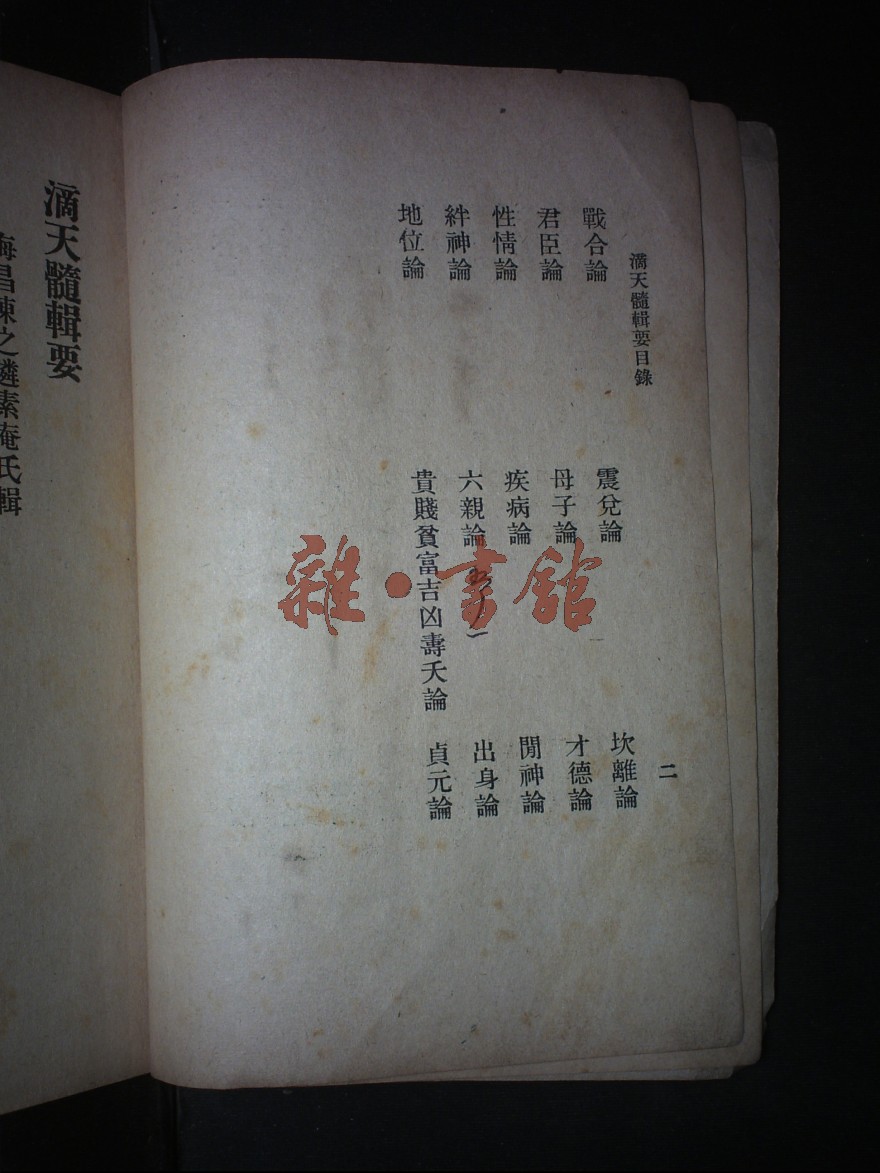 滴天髓輯要目錄
二
戰合論
震兌論
坎離論
君臣論
母子論
才德論
性情論
疾病論
閒神論
絆神論
六親論
出身論
地位論
貴賤貧富吉凶壽夭論
貞元論
雜·書館
滴天髓輯要
海昌陳之遴素庵氏輯